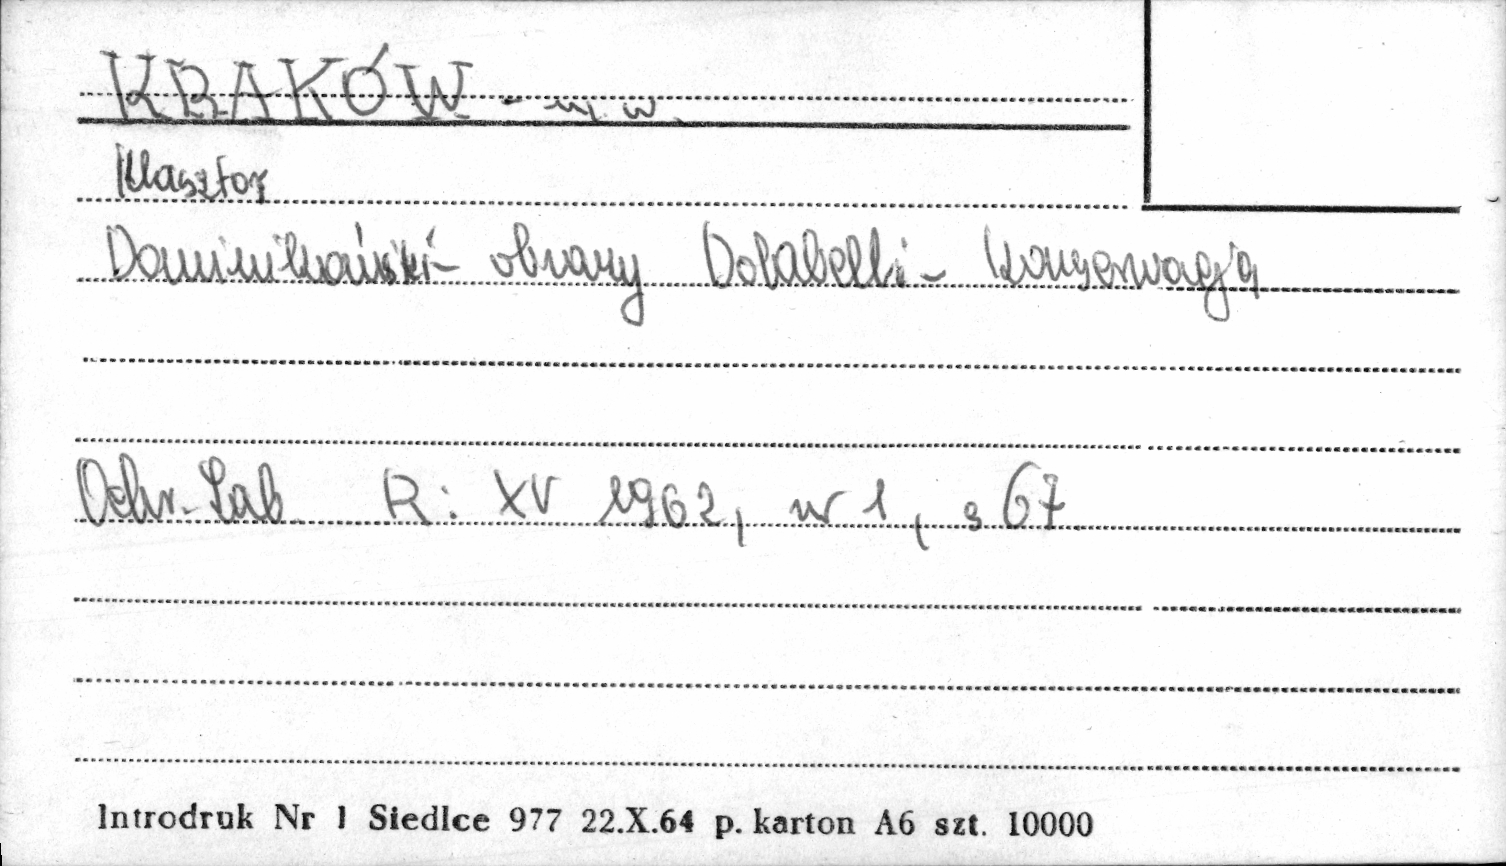 KRAKÓW - m. w.
Klasztor
Dominikański - obrazy Dolabelli - konserwacja
Ochr. Zab. R: XV 1962, nr 1, s 67.
Introdruk Nr 1 Siedlce 977 22.X.64 p. karton A6 szt. 10000